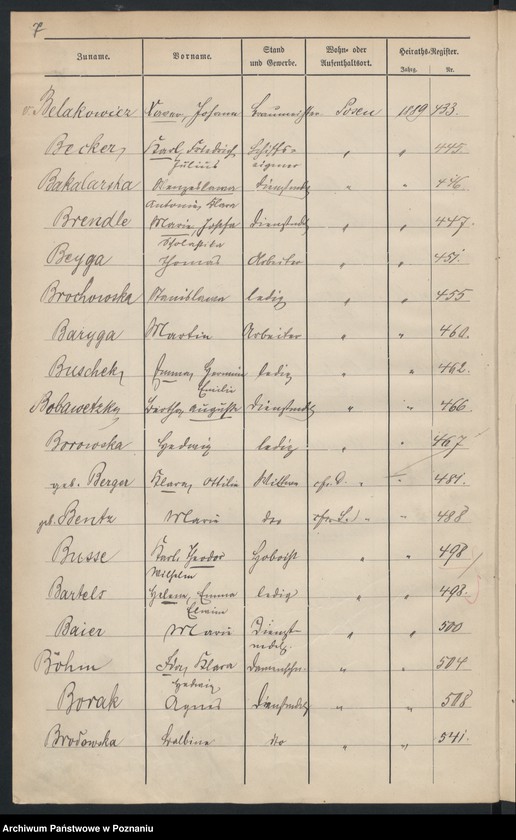 7
Zuname. Vorname. Stand und Gewerbe. Wohn- oder Aufenthaltsort. Heiraths-Register. Jahrg. Nr.
v. Belakowicz Xaver, Johann Baumeister Posen 1889 433.
Becker, Karl, Friedrich Schiffs- " " 445.
Julius eigner
Bakalarska Wenzeslawa Dienstmdch " " 446.
Antonie, Klara
Brendle Marie, Josepha Dienstmdch " " 447.
Scholastika
Beyga Thomas Arbeiter " " 451.
Brochowska Stanislawa ledig " " 455
Baryga Martin Arbeiter " " 460.
Buschek, Emma, Hermine ledig " 462.
Emilie
Bobawetzky Bertha, Auguste Dienstmdch " " 466
Borowska Hedwig ledig " " 467
geb. Berger Klara, Ottilie Wittwe " " 481.
geb. Bentz Marie " " 488
Busse Karl, Theodor Hoboist " " 498
Wilhelm
Bartels Helene, Emma ledig " " 498.
Elwine
Baier Marie Dienst- " " 500
mdch.
Böhm Ida, Klara " " 504
Hedwig
Borak Agnes Dienstmdch " " 508
Brodowska Balbina do " " 541.
Archiwum Państwowe w Poznaniu